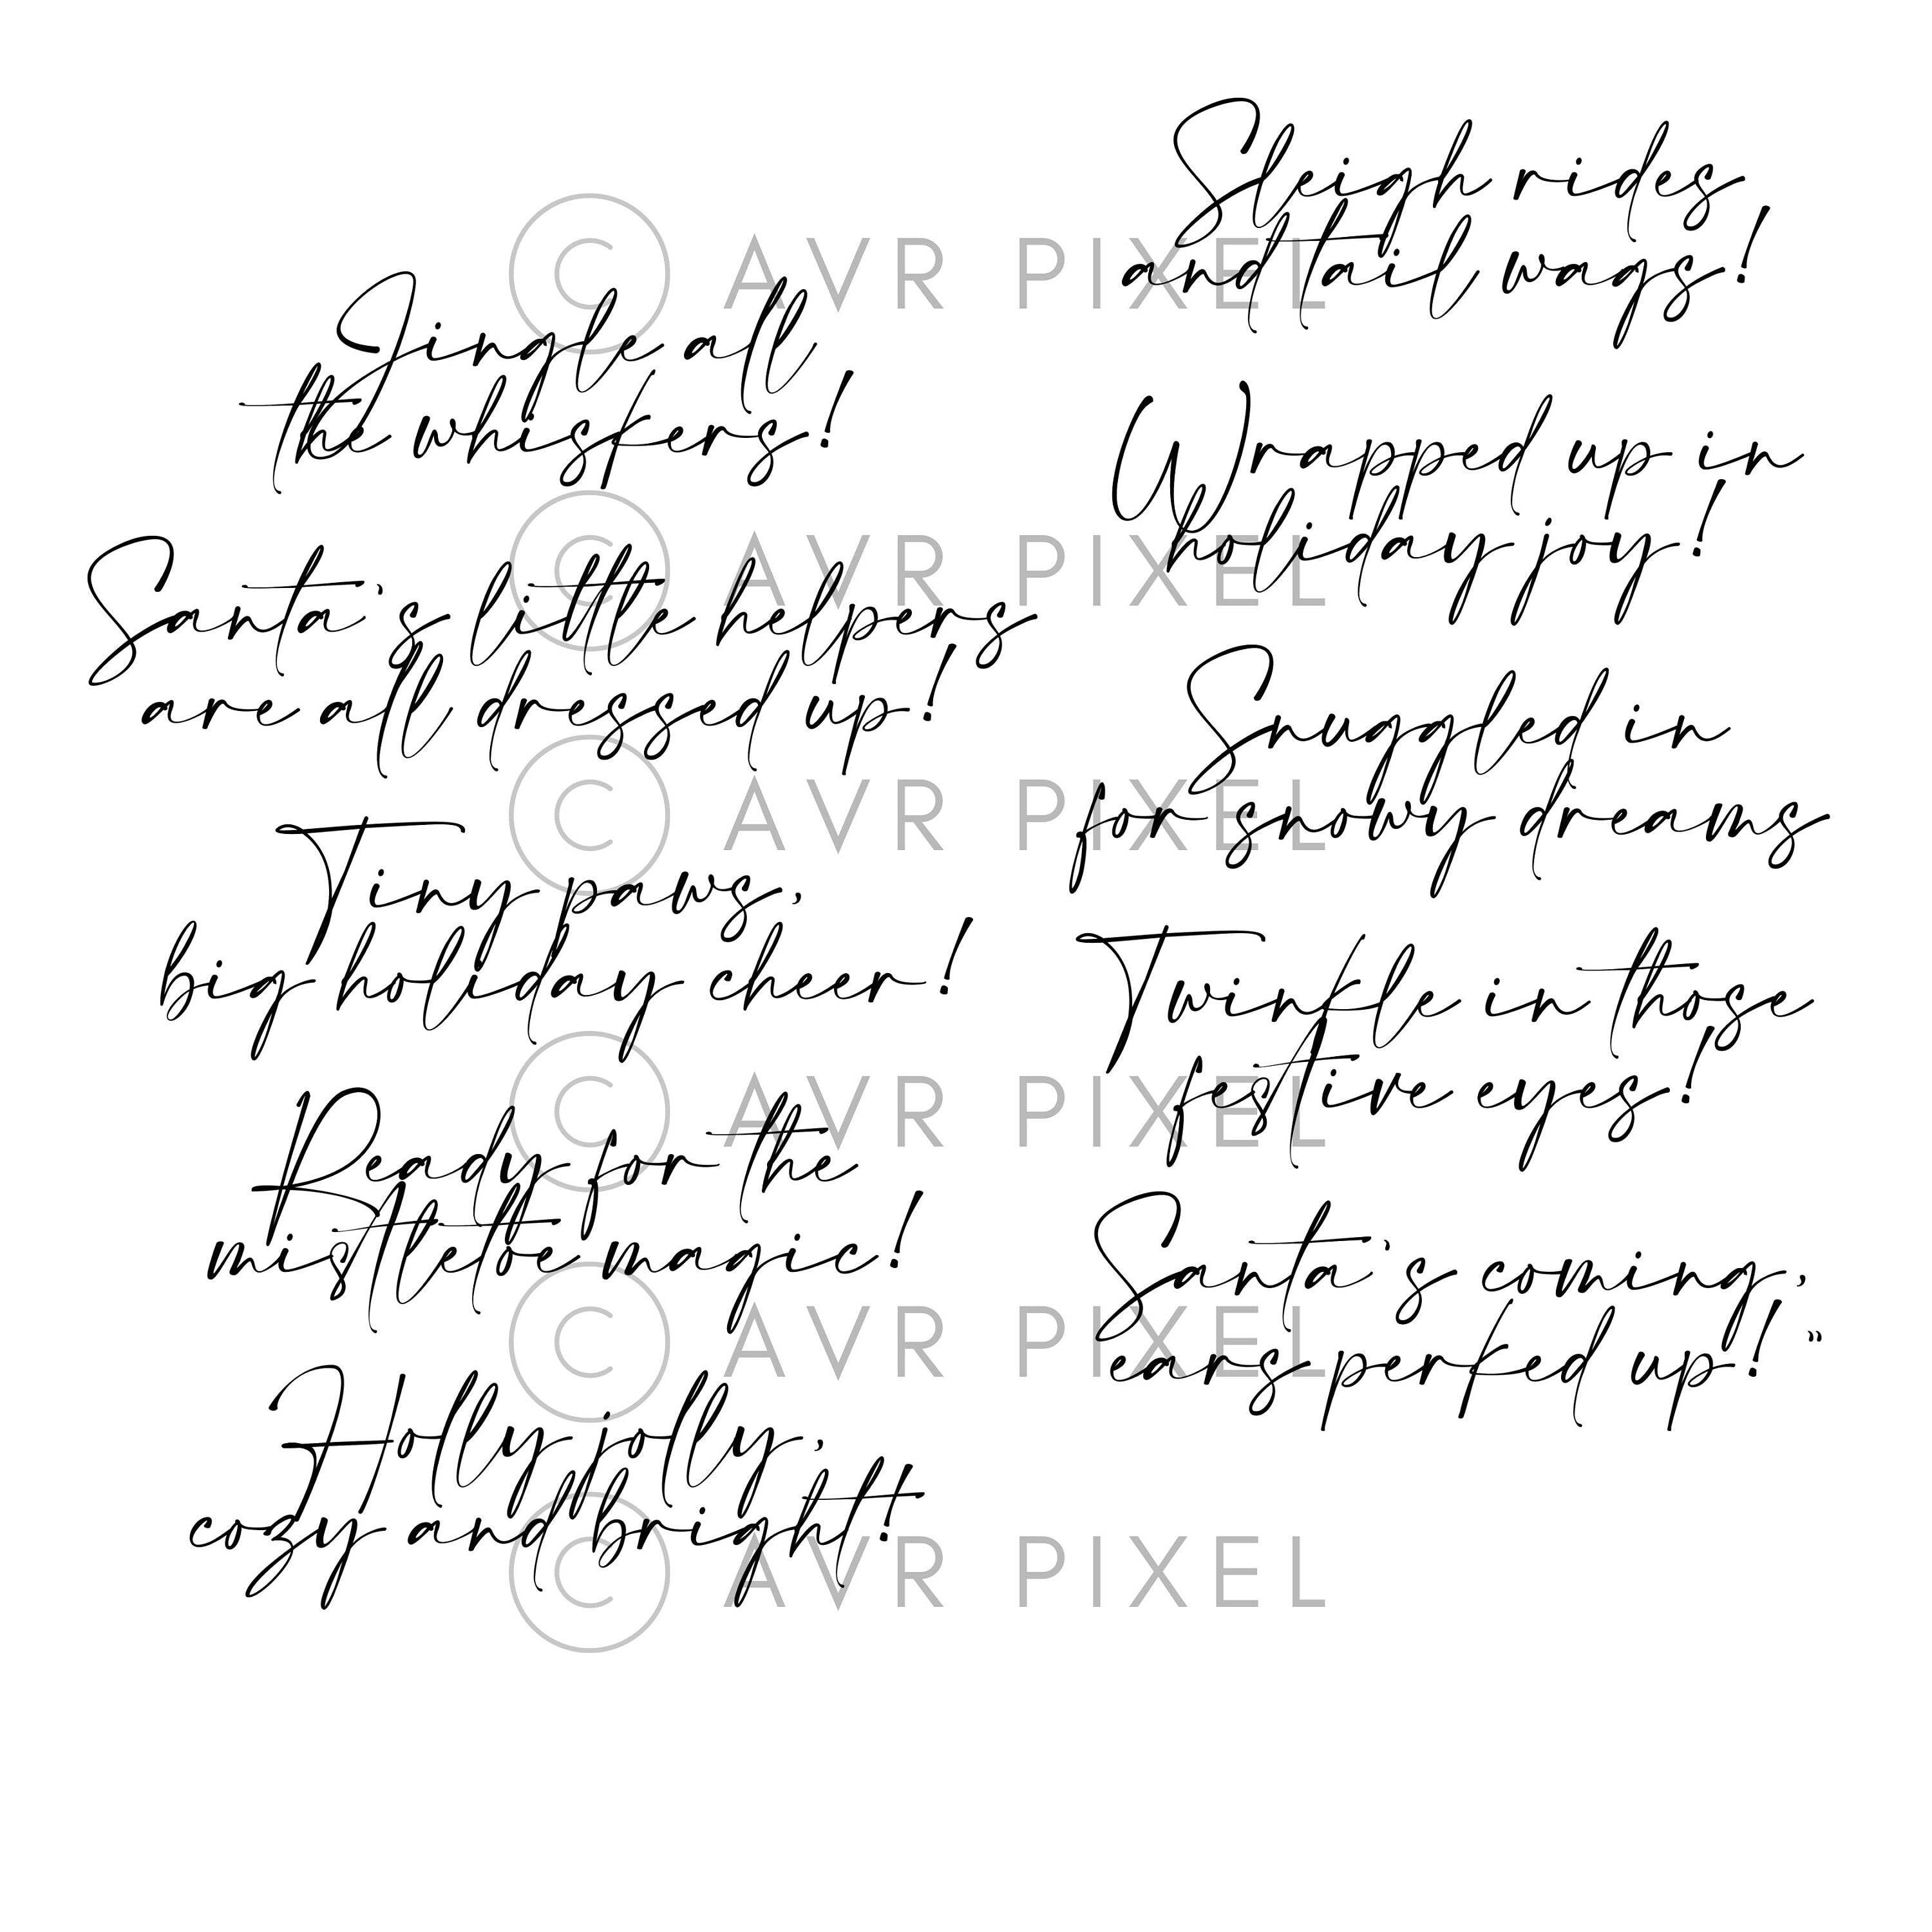 Jingle all
the whiskers!
Santa's little helpers
are all dressed up!
Tiny paws,
big holiday cheer!
Ready for the
mistletoe magic!
Holly, jolly,
cozy and bright!
Sleigh rides
and tail wags!
Wrapped up in
holiday joy!
Snuggled in
for snowy dreams
Twinkle in those
festive eyes!
Santa's coming,
ears perked up!"
© AVR PIXEL
© AVR PIXEL
© AVR PIXEL
© AVR PIXEL
© AVR PIXEL
© AVR PIXEL